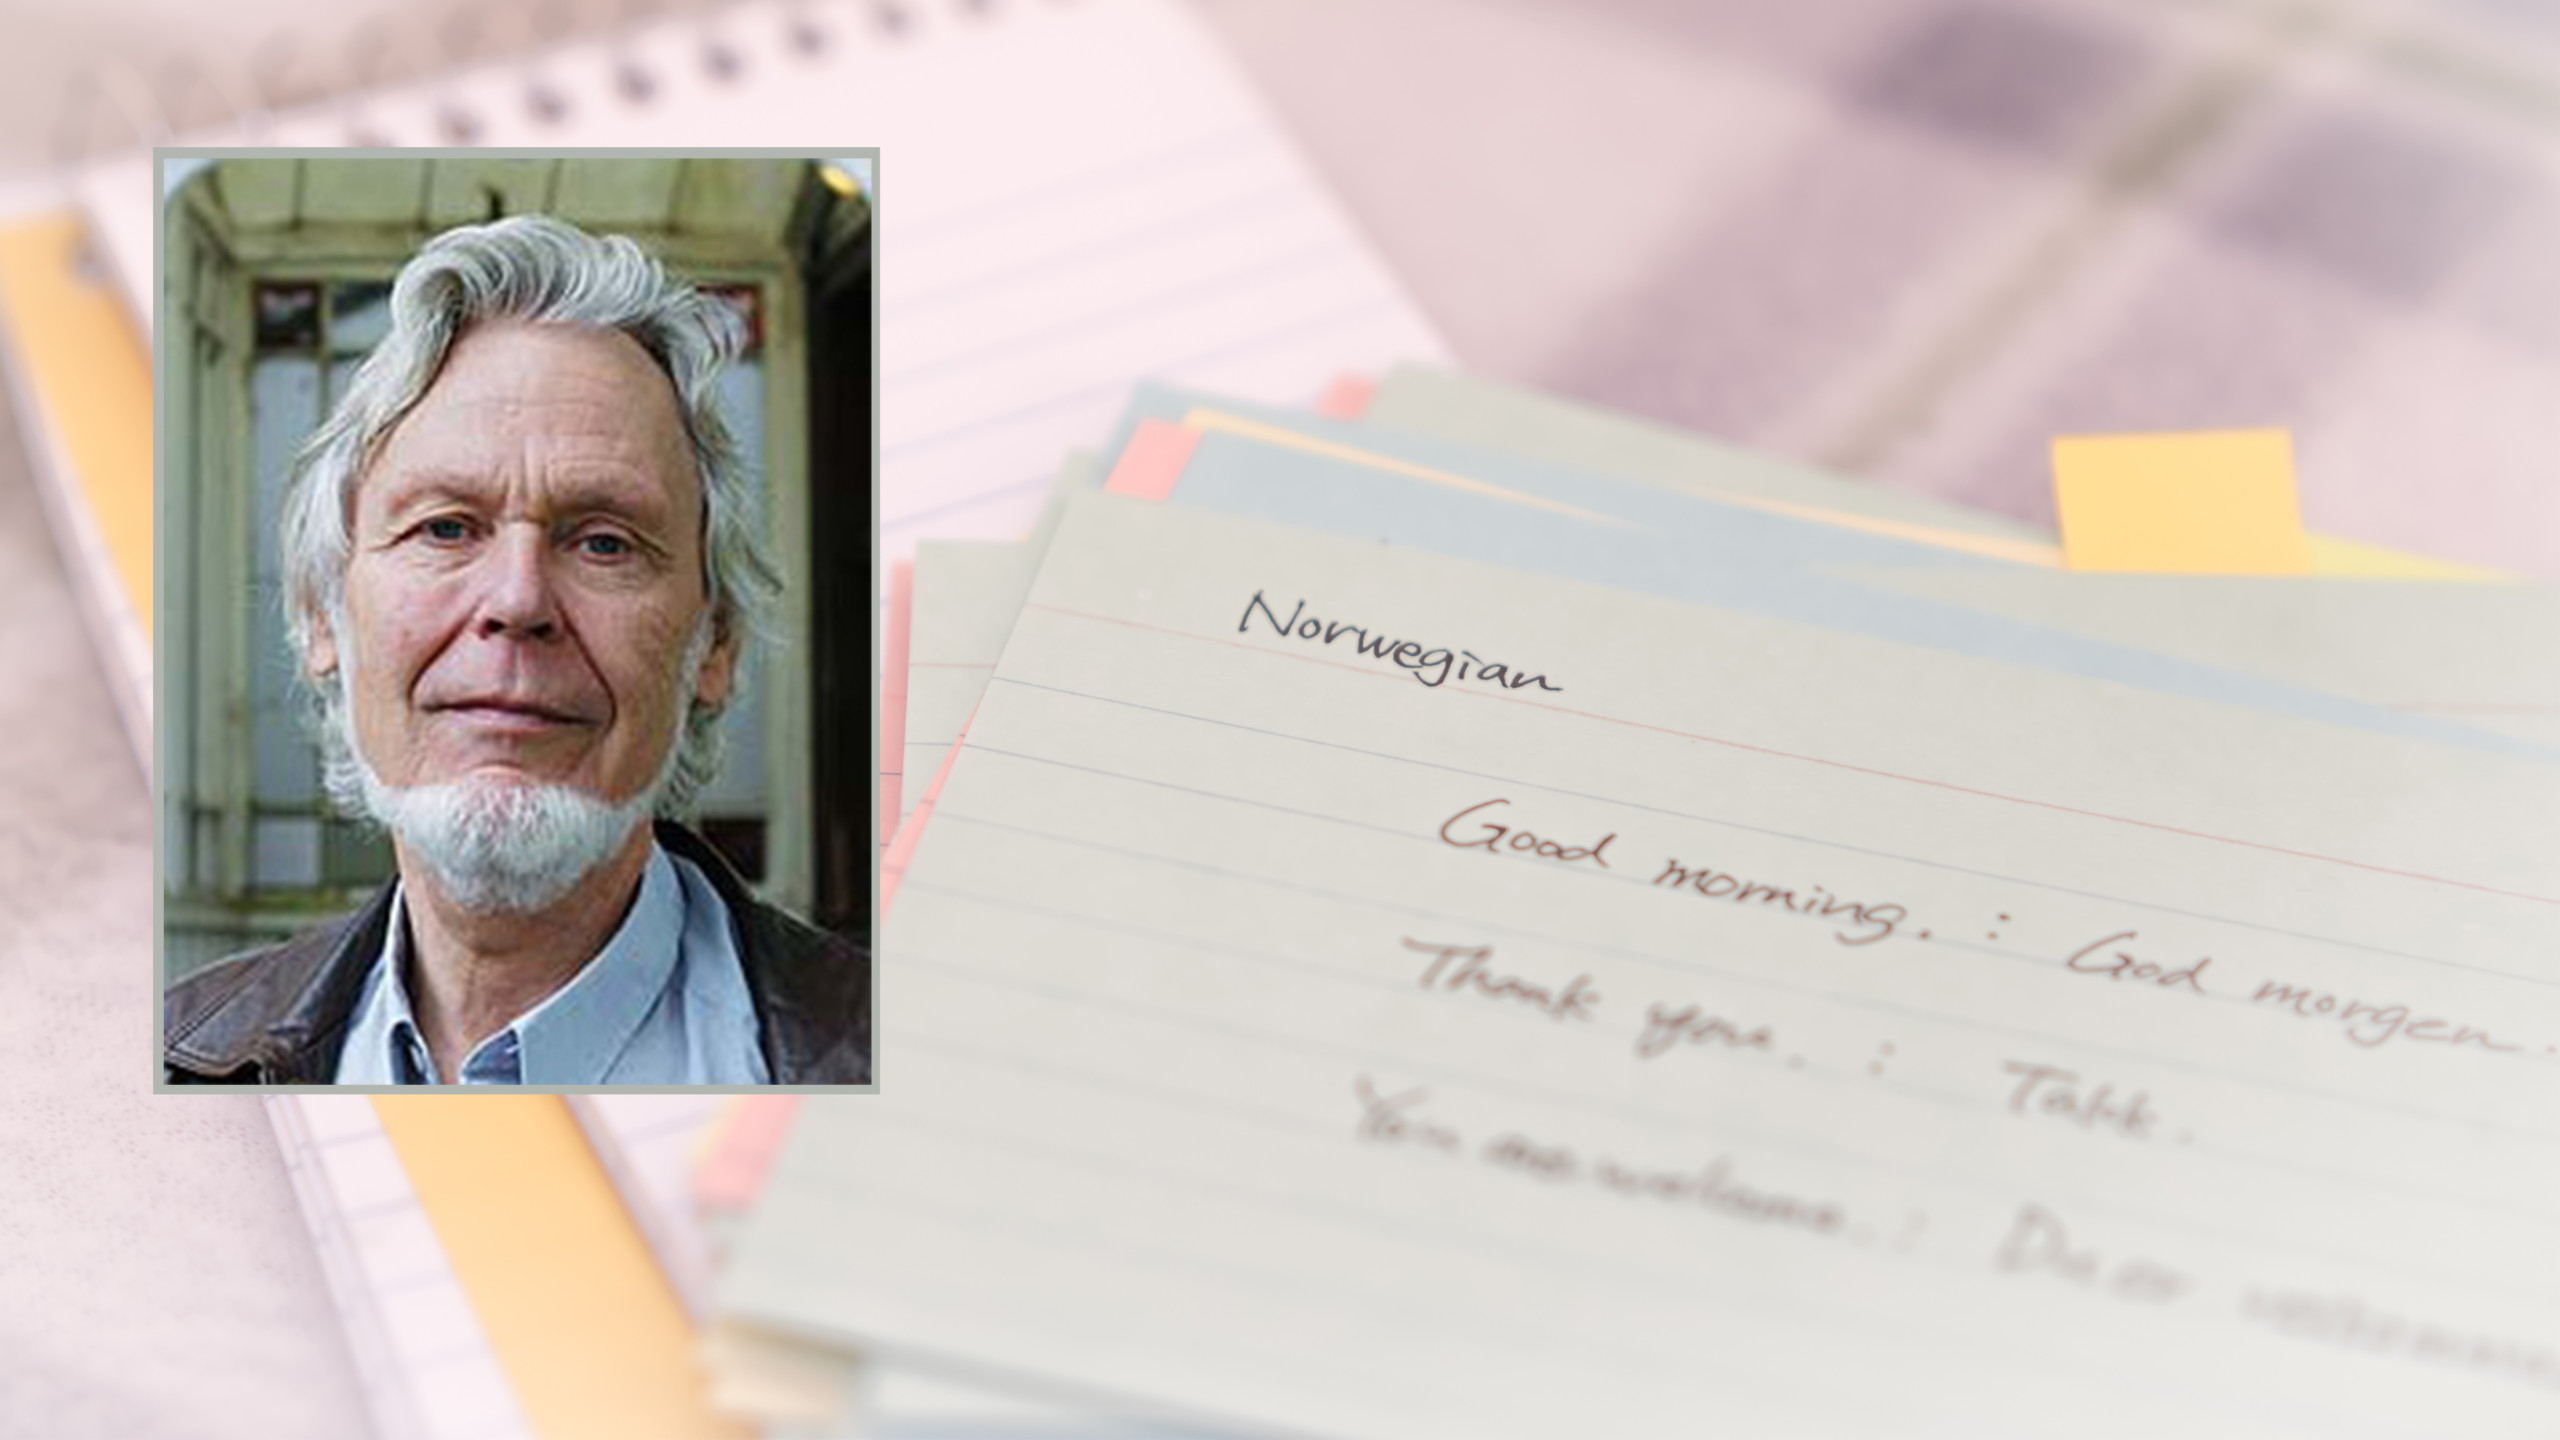 Norwegian
Good morning. : God morgen.
Thank you. : Takk.
You are welcome. : Du er